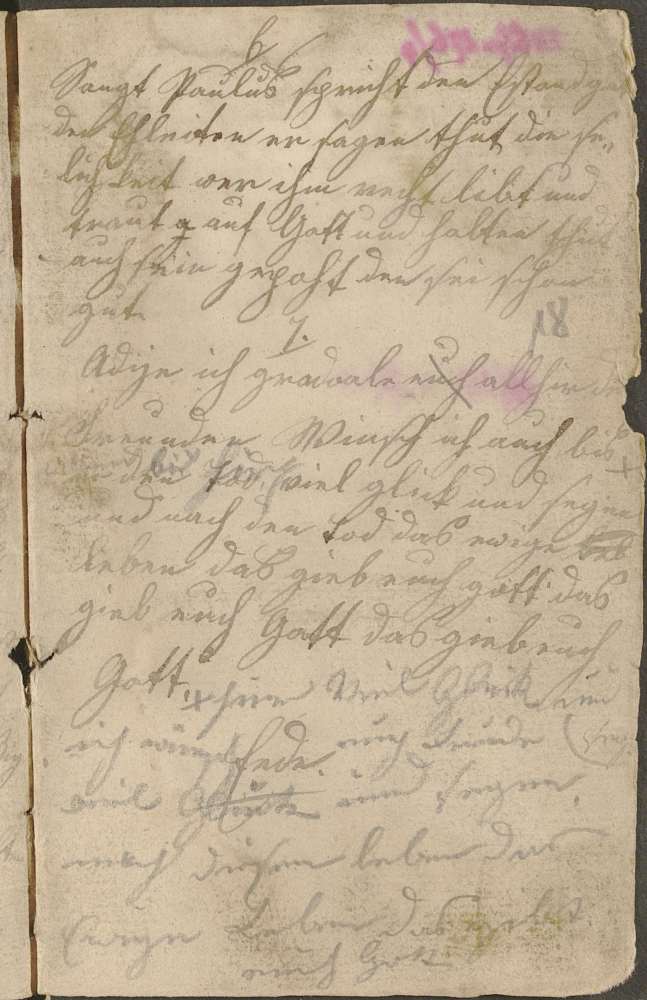 6
Sangt Paulus spricht den Estand gu
den Ehleiten er sagen thut die se„
lichkeit wer ihm recht libt und
traut auf Gott und halten thut
auch sein gepoht den sei schon
gut.
7.
18
Adije ich gradoale euch all hir
Freunden Winsch ich auch bis
den Tod viel glick und segen
und nach den tod das ewige
Leben das gieb euch gott das
gieb euch Gott das gieb euch
Gott.
+ hir Viel Glück und
ich euch Freunde
viel Glück und segen
nach diesen leben das
Ewige Leben das gebe
euch Gott